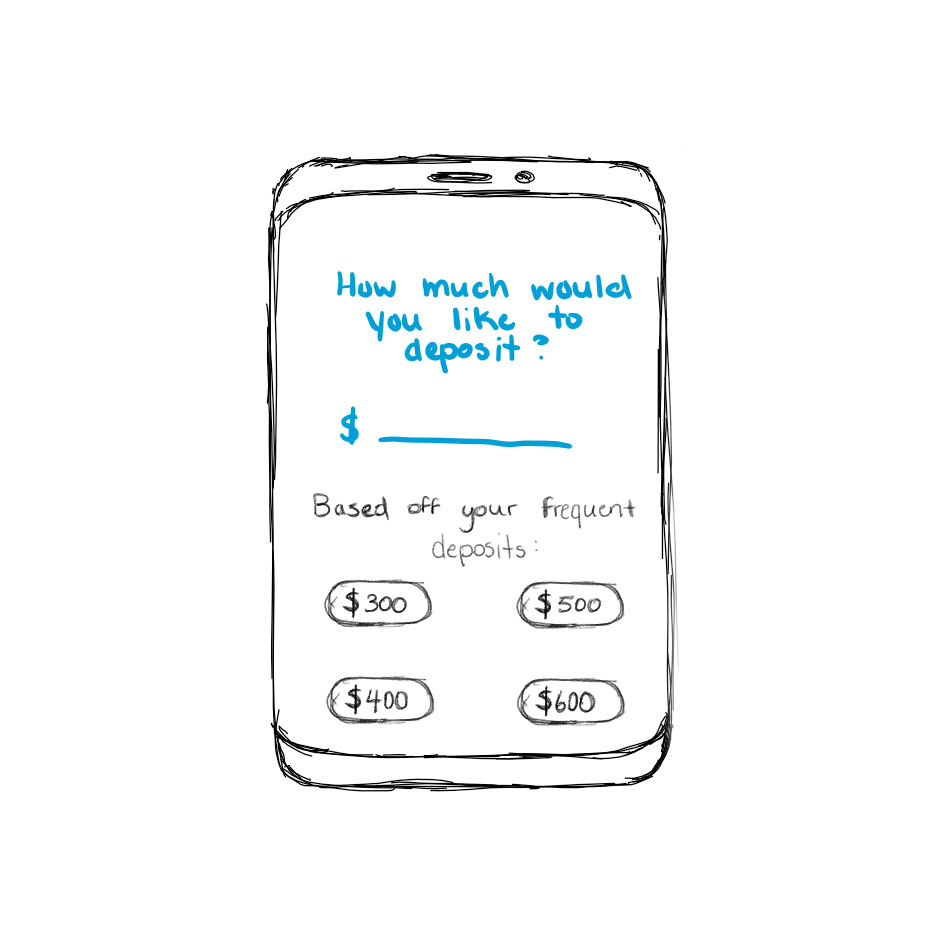 How much would
you like to
deposit?
$
Based off your frequent
deposits:
$300 $500
$400 $600